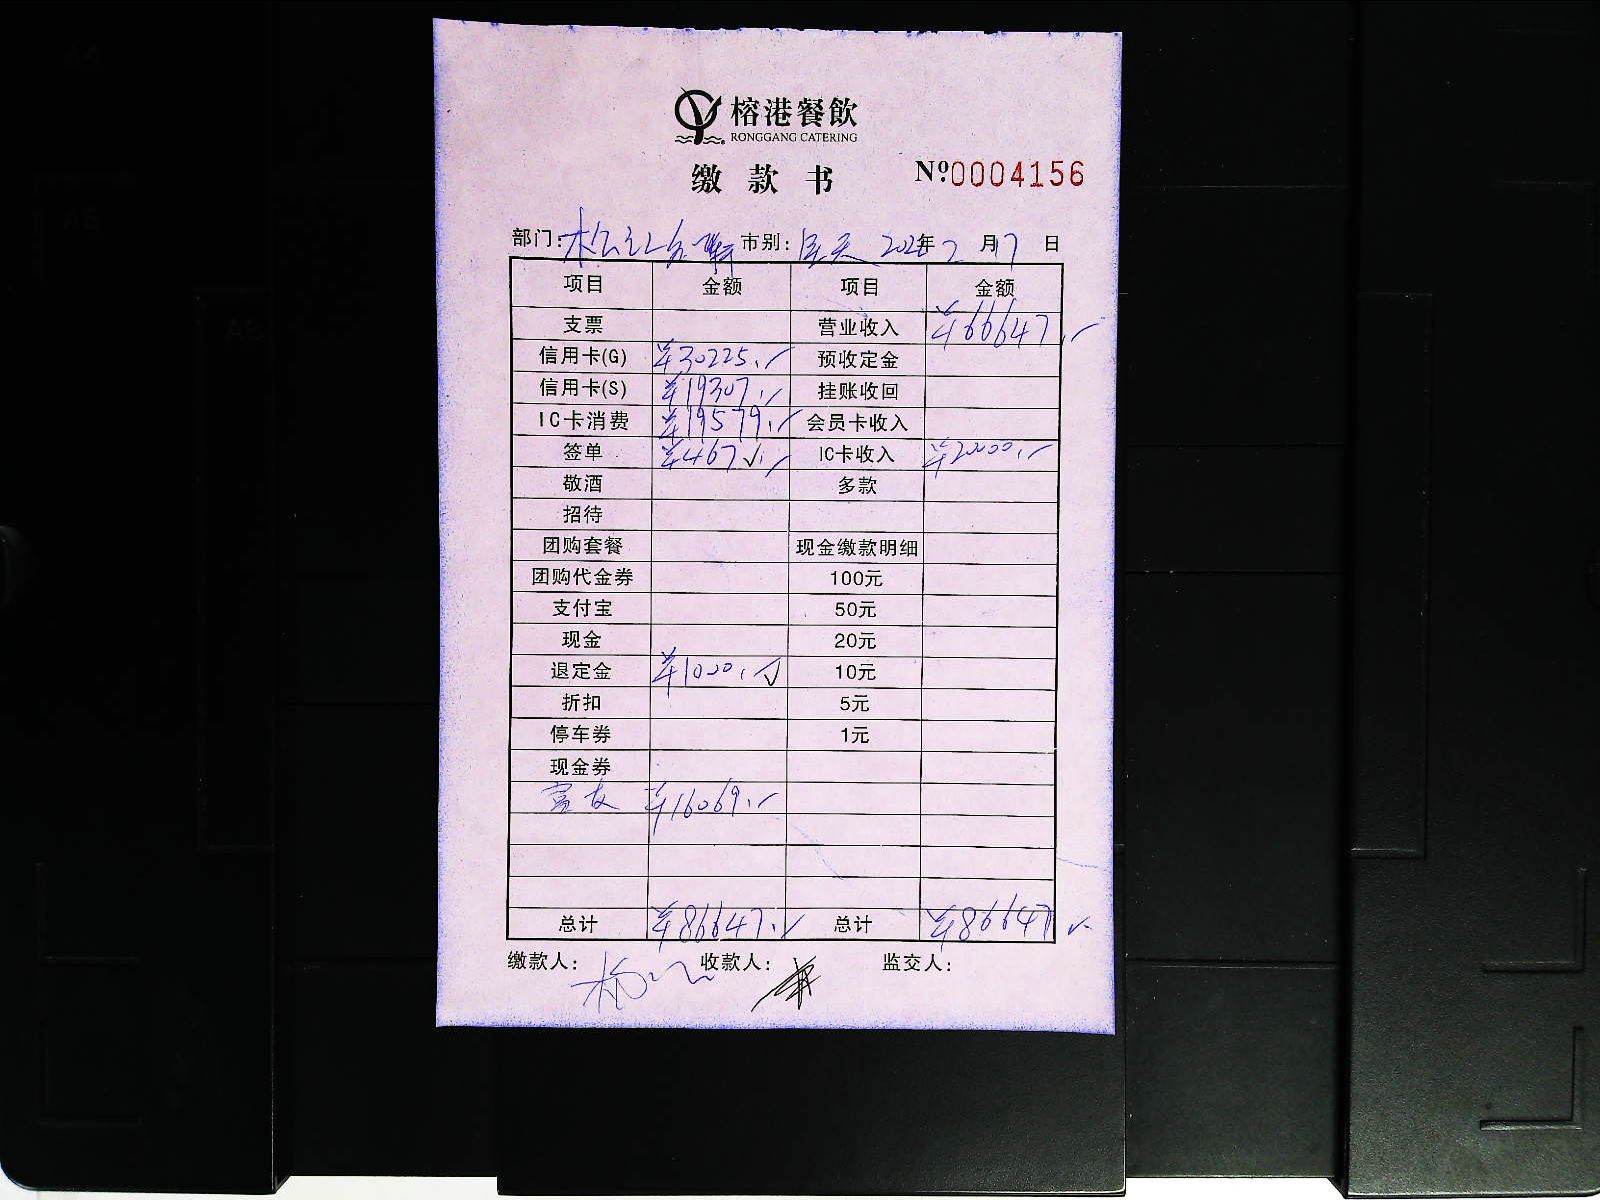 榕港餐飲
RONGGANG CATERING
缴款书 Nº0004156
部门: 市别: 全天 202 年 2 月 7 日
项目 金额 项目 金额
支票 营业收入 ¥66647.
信用卡(G) ¥30225. 预收定金
信用卡(S) ¥19307. 挂账收回
IC卡消费 ¥19579. 会员卡收入
签单 ¥467 IC卡收入 ¥20000.
敬酒 多款
招待
团购套餐 现金缴款明细
团购代金券 100元
支付宝 50元
现金 20元
退定金 ¥1000. 10元
折扣 5元
停车券 1元
现金券
富友 ¥16069.
总计 ¥86647. 总计 ¥86647
缴款人: 收款人: 监交人: